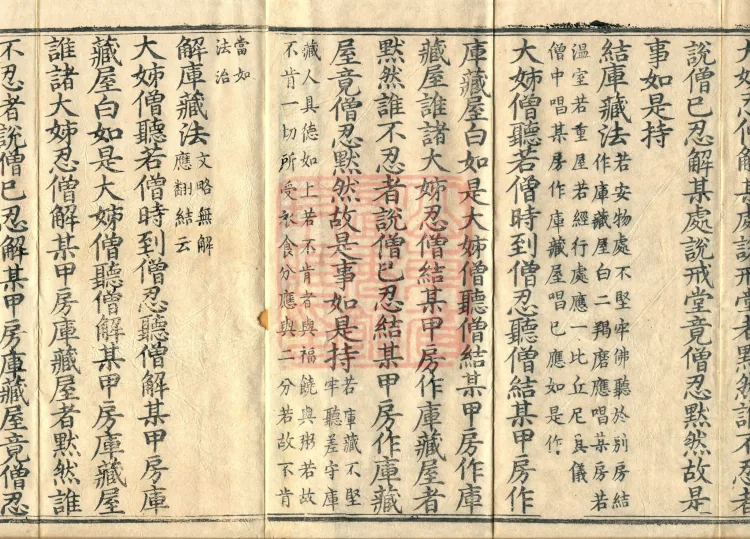 大姊忍僧解某處說戒堂者默然誰不忍者
說僧已忍解某處說戒堂竟僧忍默然故是
事如是持
結庫藏法
若安物處不堅牢佛聽於別房結
作庫藏屋白二羯磨應唱某房若
溫室若重屋若經行處應一比丘尼具儀
僧中唱某房作庫藏屋唱已應如是作
大姊僧聽若僧時到僧忍聽僧結某甲房作
庫藏屋白如是大姊僧聽僧結某甲房作庫
藏屋誰諸大姊忍僧結某甲房作庫藏屋者
默然誰不忍者說僧已忍結某甲房作庫藏
屋竟僧忍默然故是事如是持
若庫藏不堅
牢聽差守庫
藏人具德如上若不肯者與福饒與粥若故
不肯一切所受衣食分應與二分若故不肯
當如
法治
解庫藏法
文略無解
應翻結云
大姊僧聽若僧時到僧忍聽僧解某甲房庫
藏屋白如是大姊僧聽僧解某甲房庫藏屋
誰諸大姊忍僧解某甲房庫藏屋者默然誰
不忍者說僧已忍解某甲房庫藏屋竟僧忍